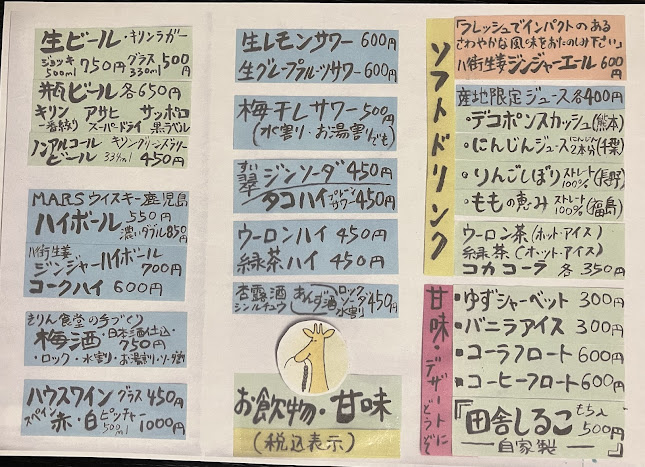 生ビール・キリンラガー
ジョッキ 500ml 750円 グラス 330ml 500円
瓶ビール 各650円
キリン アサヒ サッポロ
一番搾り スーパードライ 黒ラベル
ノンアルコール キリングリーンズフリー
ビール 334ml 450円
MARSウイスキー鹿児島
ハイボール 550円
濃いダブル850円
八街生姜
ジンジャーハイボール
700円
コークハイ 600円
きりん食堂の手づくり
梅酒・日本酒仕込・
750円
・ロック・水割り・お湯割り・ソーダ割
ハウスワイン グラス 450円
スペイン 赤・白 ピッチャー 500ml 1000円
生レモンサワー 600円
生グレープフルーツサワー 600円
梅干しサワー 500円
(水割り・お湯割りでも)
翠 ジンソーダ 450円
タコハイ プレーンサワー 450円
ウーロンハイ 450円
緑茶ハイ 450円
杏露酒 シンルチュウ あんず酒 ロック ソーダ 水割り 450円
お飲物・甘味
(税込表示)
ソフトドリンク
「フレッシュでインパクトのある
さわやかな風味をおたのしみ下さい」
八街生姜ジンジャーエール 600円
産地限定ジュース各400円
・デコポンスカッシュ(熊本)
・にんじんジュース にんじん 2本分 (千葉)
・りんごしぼり ストレート 100% (長野)
・ももの恵み ストレート 100% (福島)
ウーロン茶(ホット・アイス)
緑茶(ホット・アイス)
コカコーラ 各350円
甘味・デザートにどうぞ
・ゆずシャーベット 300円
・バニラアイス 300円
・コーラフロート 600円
・コーヒーフロート 600円
『田舎しるこ もち入 500円
―自家製―』